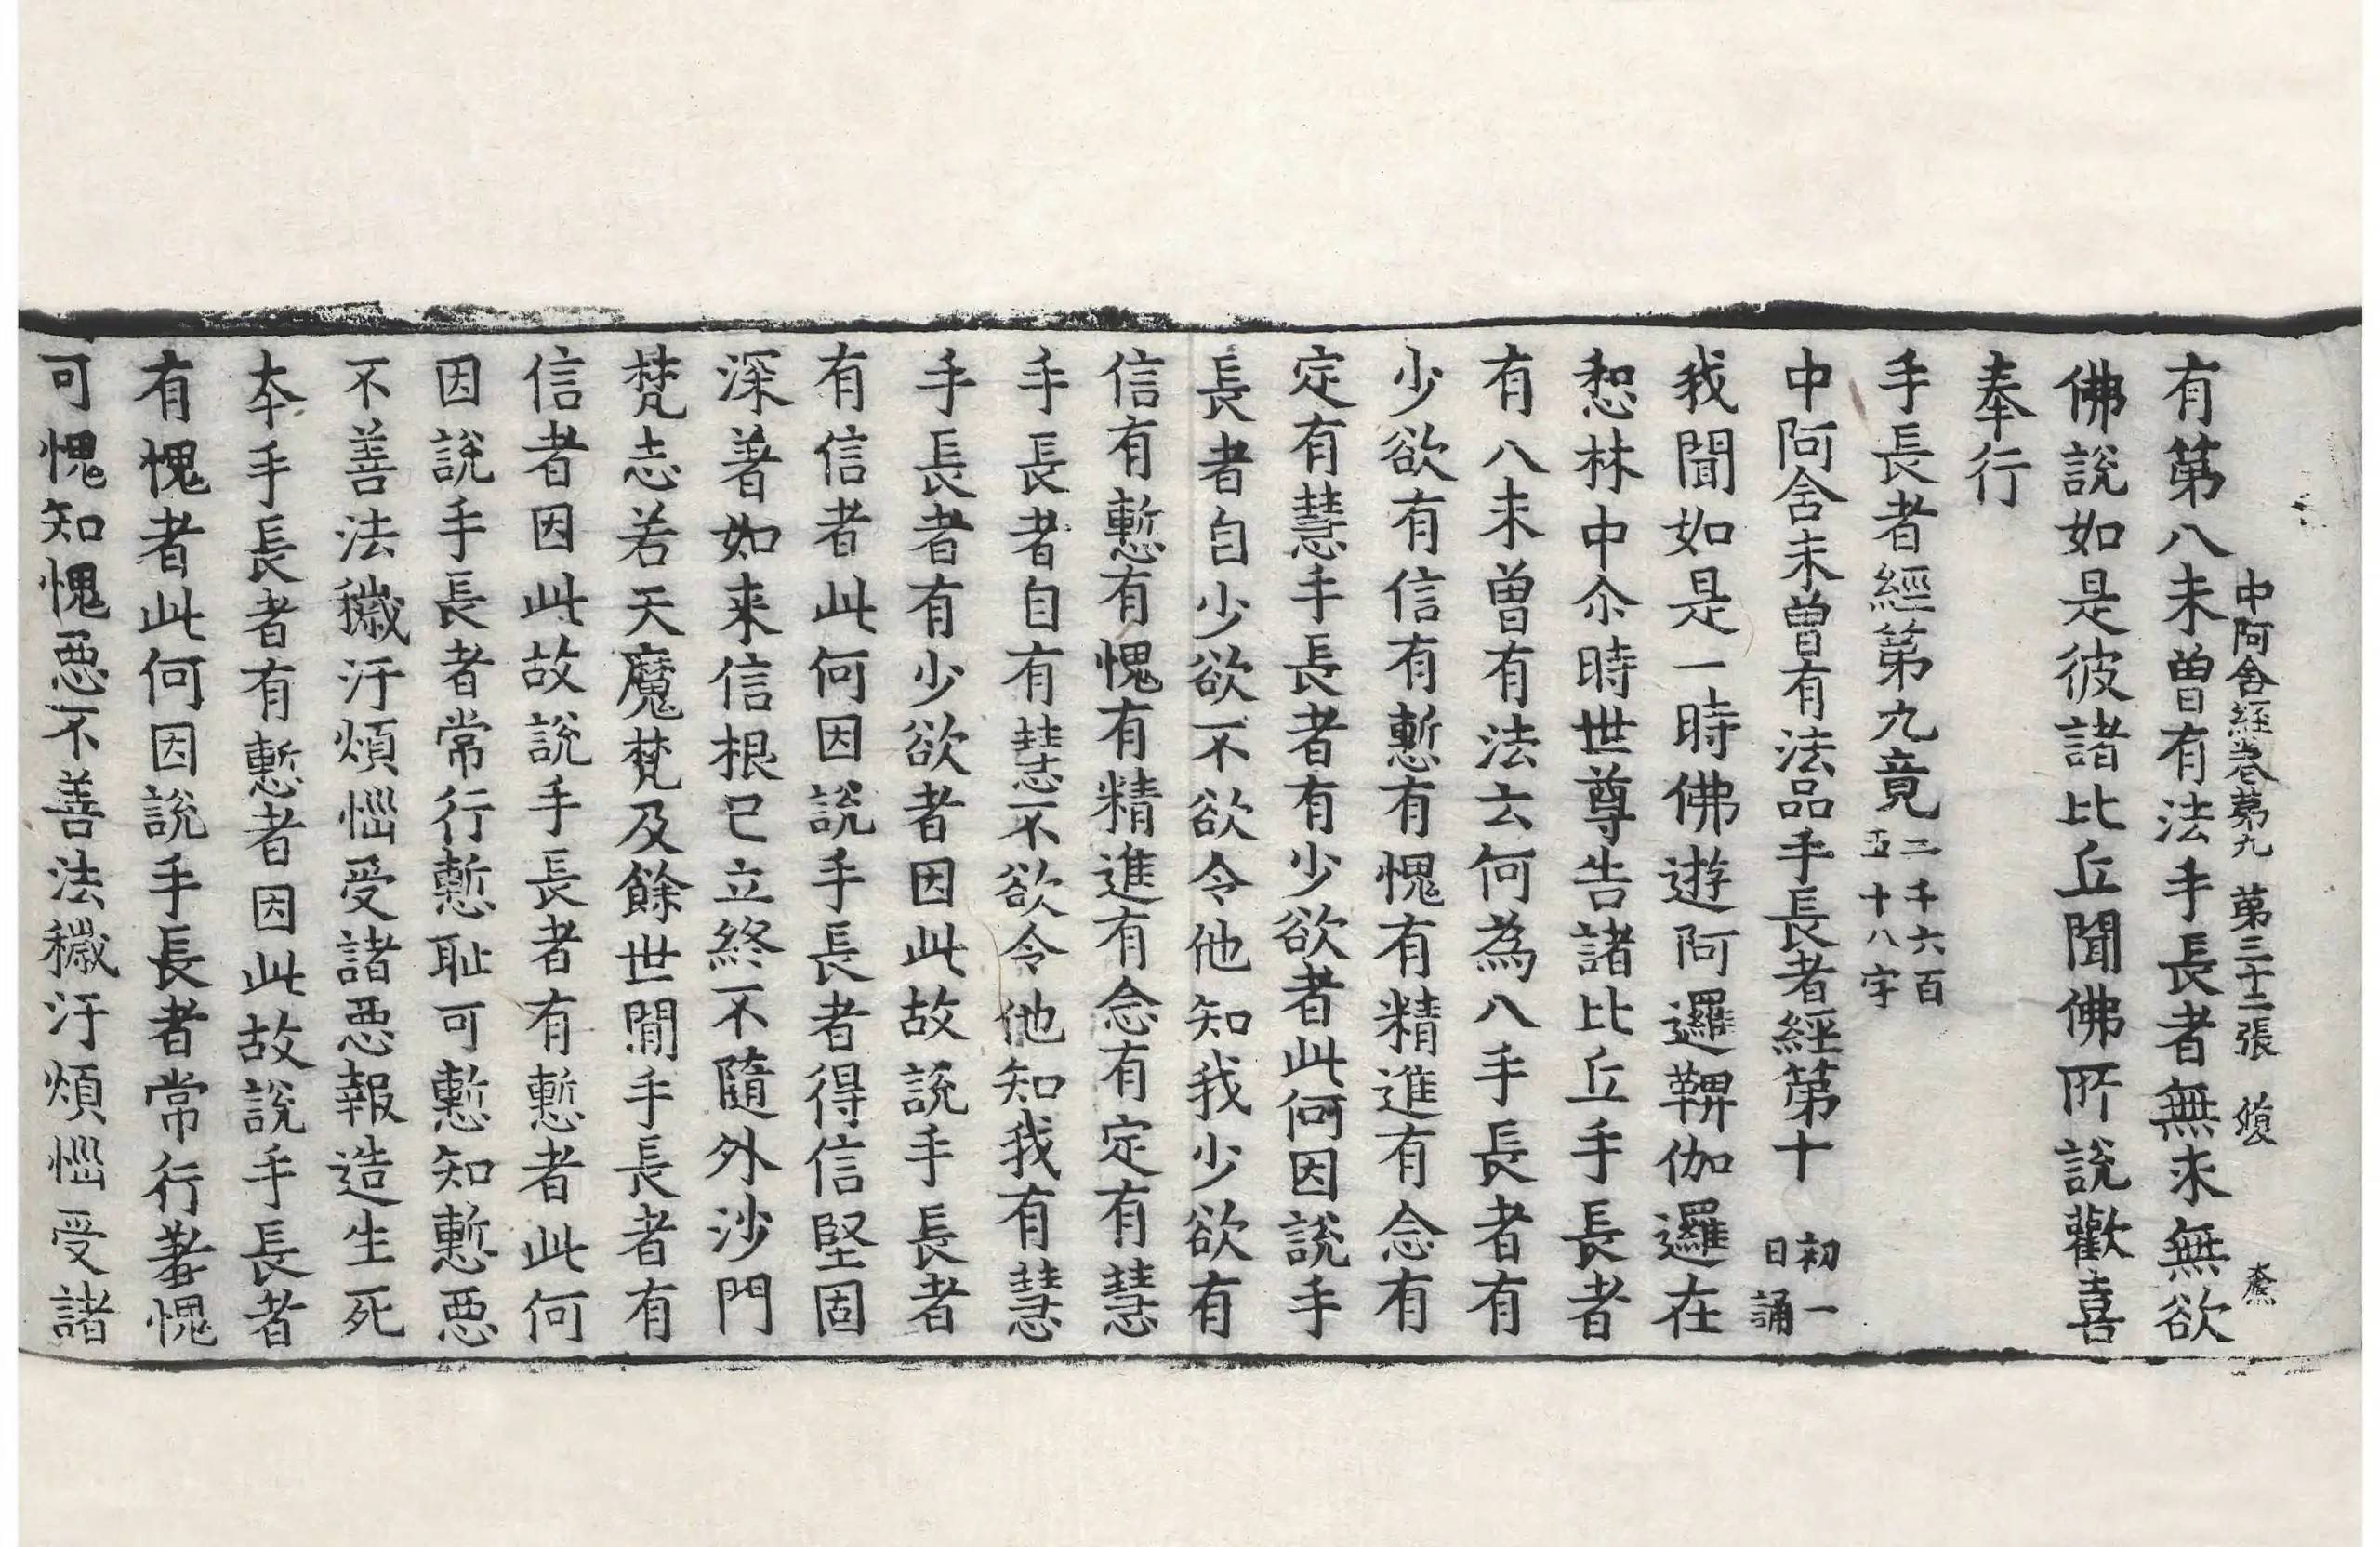 中阿含經卷第九　第三十二張
有第八未曾有法手長者無求無欲
佛說如是彼諸比丘聞佛所說歡喜
奉行
手長者經第九竟二千六百五十八字
中阿含未曾有法品手長者經第十初一日誦
我聞如是一時佛遊阿邏鞞伽邏在
惒林中尒時世尊告諸比丘手長者
有八未曾有法云何為八手長者有
少欲有信有慙有愧有精進有念有
定有慧手長者有少欲者此何因說手
長者自少欲不欲令他知我少欲有
信有慙有愧有精進有念有定有慧
手長者自有慧不欲令他知我有慧
手長者有少欲者因此故說手長者
有信者此何因說手長者得信堅固
深著如来信根已立終不隨外沙門
梵志若天魔梵及餘世閒手長者有
信者因此故說手長者有慙者此何
因說手長者常行慙耻可慙知慙惡
不善法穢汙煩惱受諸惡報造生死
夲手長者有慙者因此故說手長者
有愧者此何因說手長者常行羞愧
可愧知愧惡不善法穢汙煩惱受諸